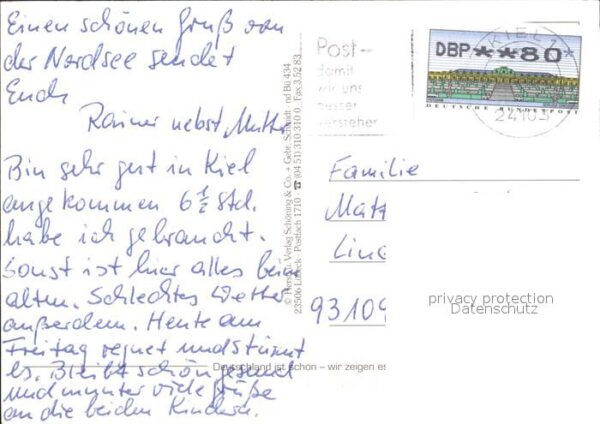 Einen schönen Gruß von
der Nordsee sendet
Euch
Rainer nebst Mutter
Bin sehr gut in Kiel
angekommen 6 1/2 Std.
habe ich gebraucht.
Sonst ist hier alles beim
alten. Schlechtes Wetter
außerdem. Heute am
Freitag regnet und stürmt
es. Bleibt schön gesund
und munter viele Grüße
an die beiden Kinder.
© Herst. u. Verlag Schöning & Co. + Gebr. Schmidt · nd Bü 434
23506 Lübeck · Postfach 1710 · ☎ (04 51) 310 310 0 · Fax 3 52 83
Deutschland ist schön – wir zeigen es
Post-
damit
wir uns
besser
verstehen
DBP**80*
DEUTSCHE BUNDESPOST
KIEL
24103
Familie
Matz
Lind
93109
privacy protection
Datenschutz